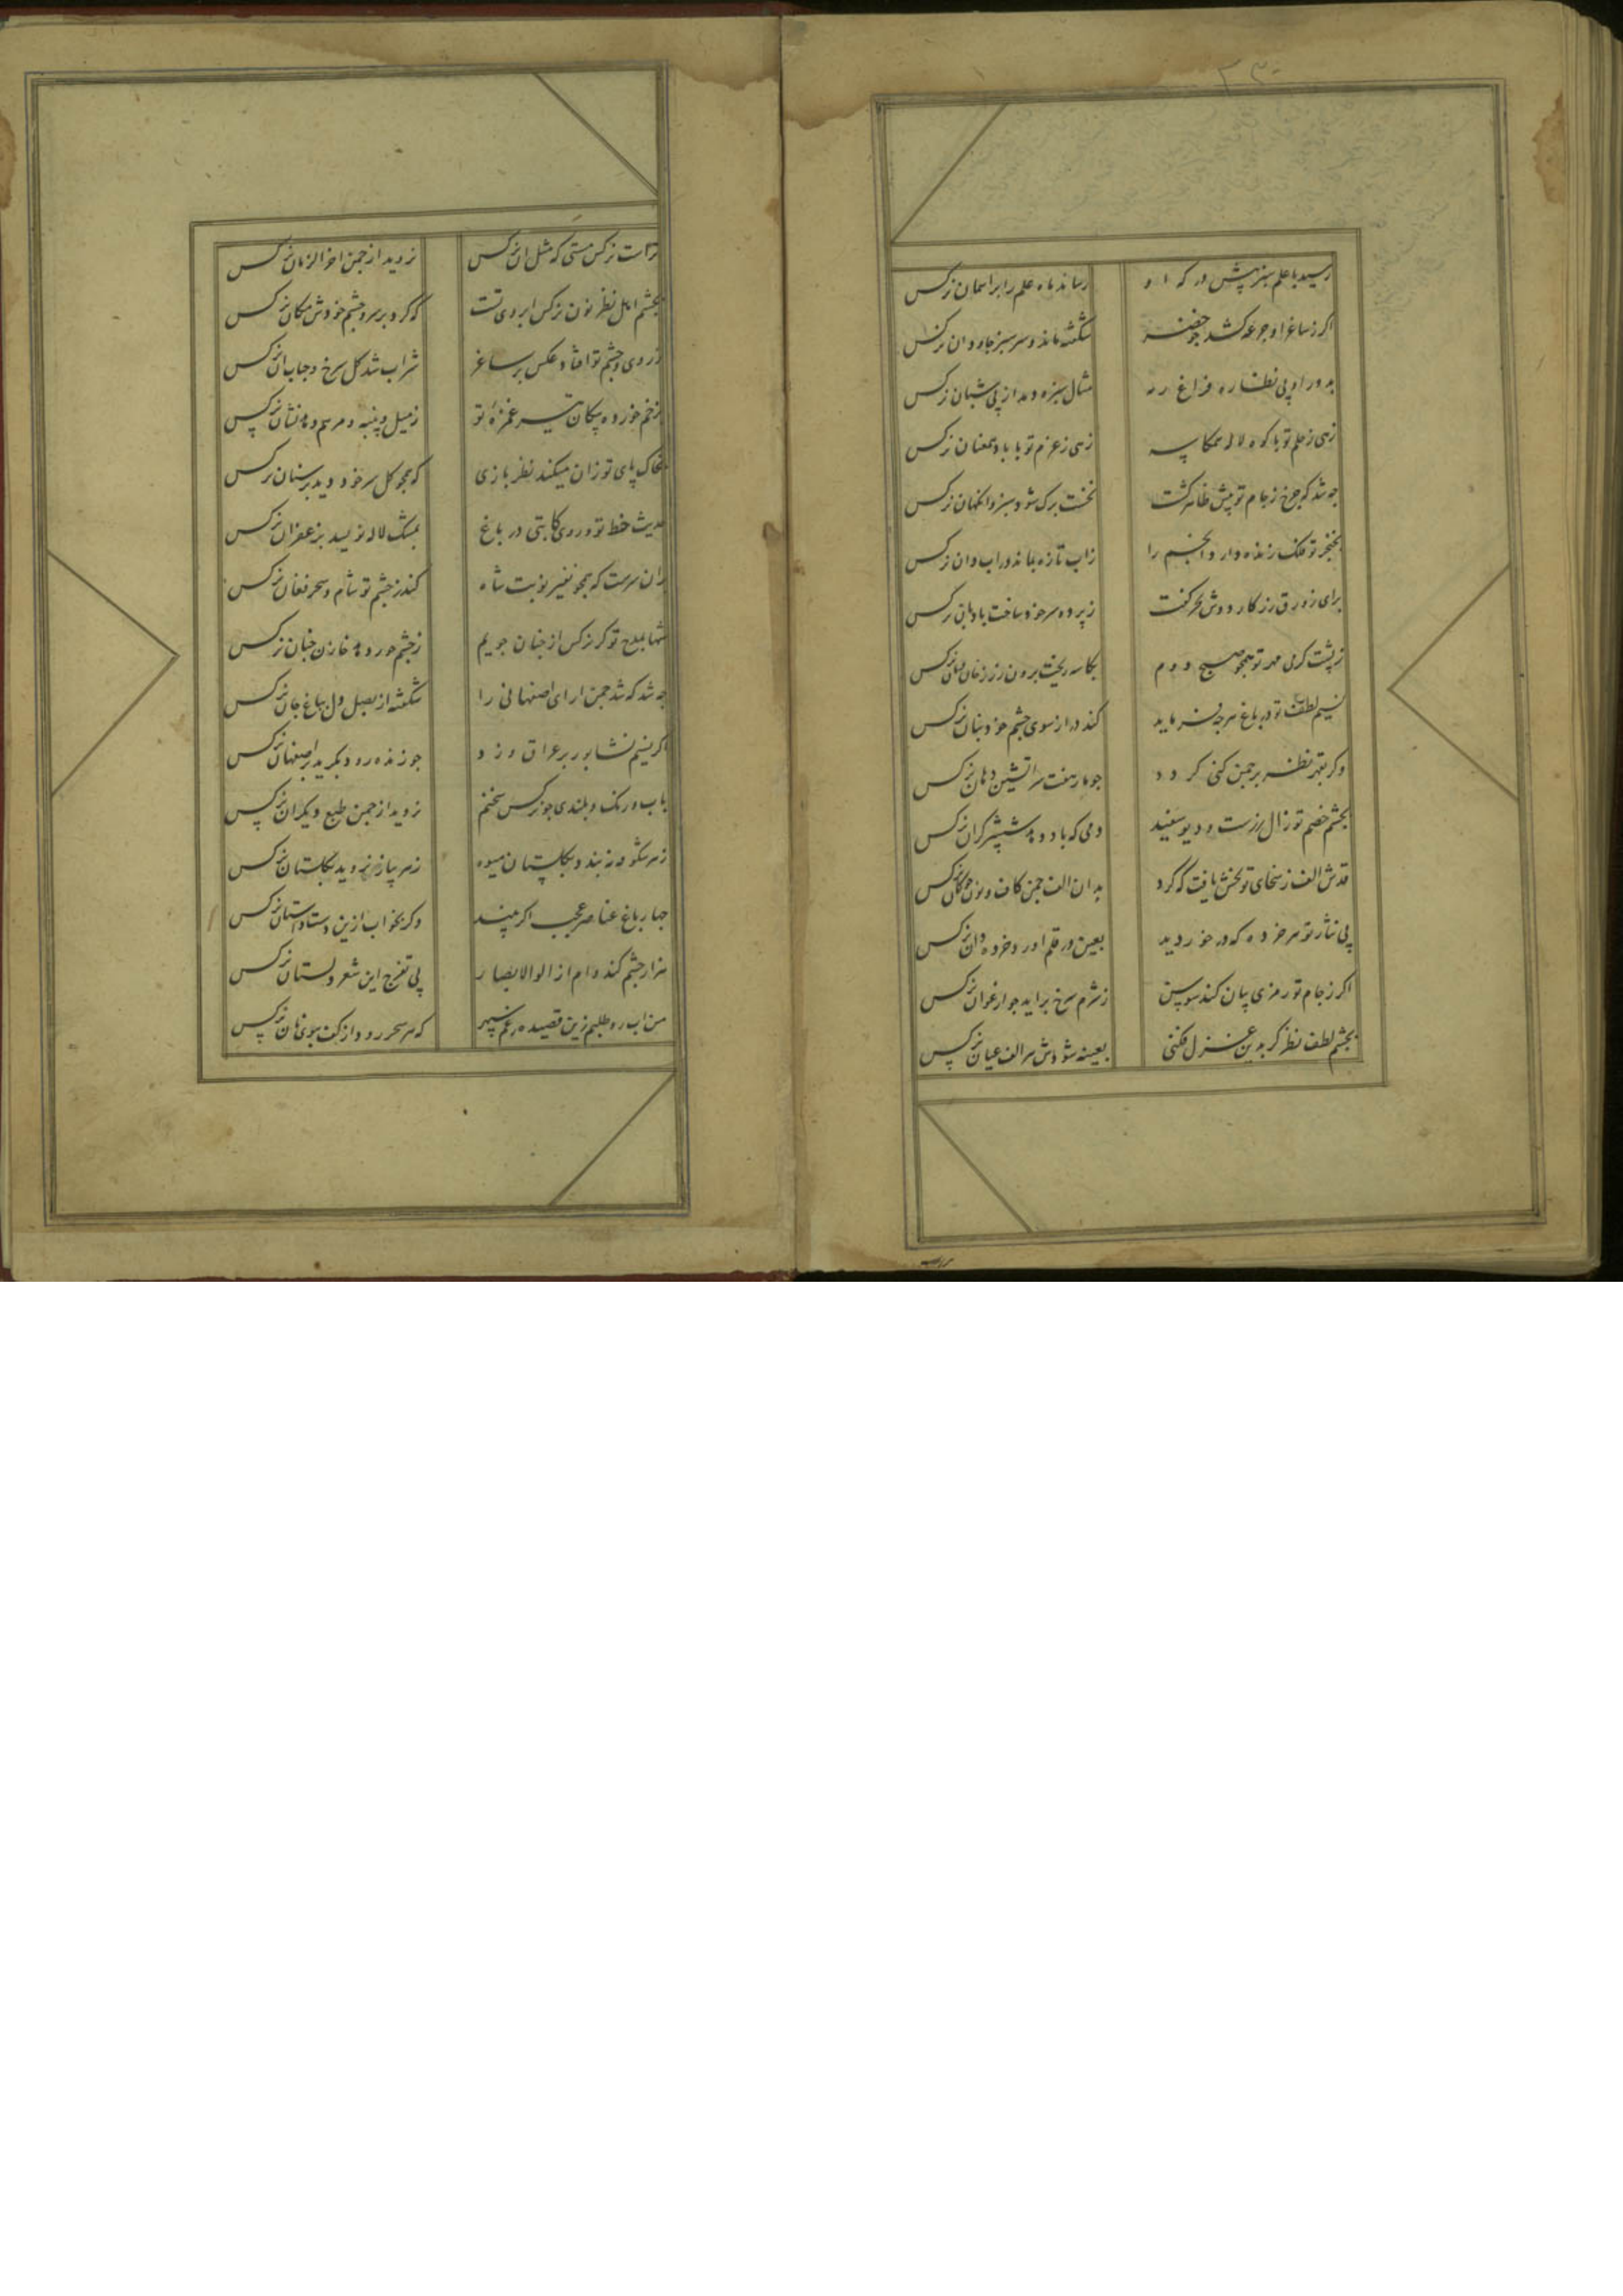 رسید با علم سبز پیش در که او
رساند ماه علم را بر اسمان نرکس
اکر ز ساغر او جرعه کشد چو خضر
شکفته ماند و سر سبز جاودان نرکس
بدور او پی نظاره فراغ رمه
مثال سبزه دمد از پی شبان نرکس
زهی ز حلم تو با کوه لاله همکاسه
زهی ز عزم تو با باد همعنان نرکس
چه شد که چرخ ز جام تو پیش ظاهر کشت
نخست برک شود سبز و انکهان نرکس
بخنجر تو فلک زنده دارد انجم را
ز اب تازه بماند در ابدان نرکس
برای زورق زرکار دوش بحر کفت
ز پرده سر خود ساخت بادبان نرکس
ز پشت کرمی مهر تو همچو صبح دوم
بکاسه ریخت برون زر ز نرکس
نسیم لطف تو در باغ هر چه فرماید
کند در از سوی چشم خود بنان نرکس
وکر بقهر نظر بر چمن کنی کردد
چو مار هفت سر اتشین دهان نرکس
بچشم خصم تو زال زرست و دیو سفید
دمی که باد و شمشیر کران نرکس
قدش الف ز سخای تو بخش یافت که کرد
بدان الف چمن کاف و نون چو کان نرکس
پی نثار تو هر خرده که در خور دید
بعین در قلم اورد خرده دان نرکس
اکر ز جام تو رمزی بیان کند سوسن
ز شرم سرخ براید چو ارغوان نرکس
بچشم لطف نظر کر بدین غزل فکنی
بعینه شودش سر الف عیان نرکس
تراست نرکس مستی که مثل ان نرکس
نروید از چمن اخر الزمان نرکس
بچشم اهل نظر نون نرکس ابروی تست
که کرد بر سر و چشم خودش مکان نرکس
ز روی و چشم تو افتاد عکس بر ساغر
شراب شد کل سرخ و حباب ان نرکس
ز زخم خورده پیکان تیر غمزه تو
ز میل و پنبه و مرهم دهد نشان نرکس
بخاک پای تو زان میکند نظر بازی
که همچو کل سر خود دید بر سنان نرکس
حدیث خط تو و روی کاتبی در باغ
بمشک لاله نویسد بزعفران نرکس
بران سرست که همچو نفیر نوبت شاه
کند ز چشم تو شام و سحر فغان نرکس
شها بمدح تو کر نرکس از جنان جویم
ز چشم حور دهد خازن جنان نرکس
چه شد که شد چمن ارای اصفهانی را
شکفته از بصل دل بباغ جان نرکس
اکر نسیم نشابور بر عراق وزد
چو زنده رود بکرید بر اصفهان نرکس
باب و رنک و بلندی چو نرکس سخنم
نروید از چمن طبع دیکران نرکس
ز هر شکوفه نبندد بکلستان میوه
ز هر پیاز نروید بکلستان نرکس
چهار باغ عناصر عجب اکر بیند
وکر بخواب ازین دستاوستان نرکس
هزار چشم کند وام از اولو الابصار
پی تفرج این شعر دلستان نرکس
من اب رو طلبم زین قصیده رغم سپهر
که هر سحر رود از کف بسوی نان نرکس